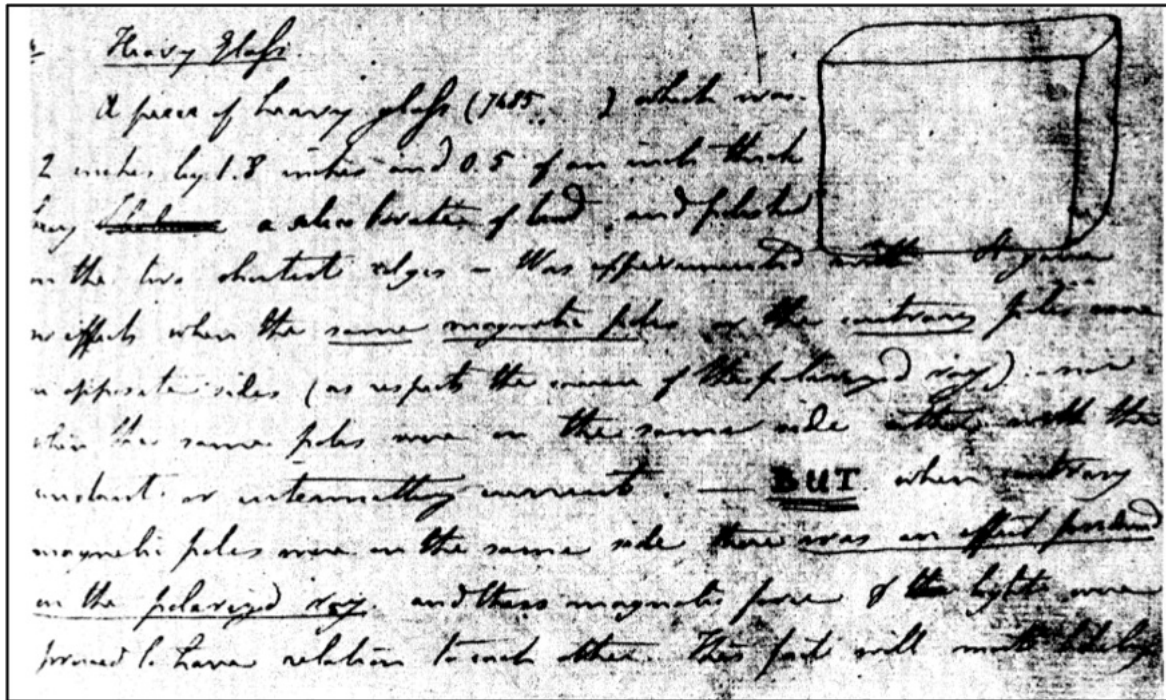 Heavy Glass.
A piece of heavy glass (7485..    ) which was
2 inches by 1.8 inches and 0.5 of an inch thick
being a silico borate of lead, and polished
on the two shortest edges - Was experimented with. It gave
no effects when the same magnetic poles or the contrary poles were
on opposite sides (as respects the course of the polarized ray) - nor
when the same poles were on the same side either with the
constant or intermitting current. — BUT when contrary
magnetic poles were on the same side there was an effect produced
on the polarized ray. and thus magnetic force & light were
proved to have relation to each other. This fact will most likely